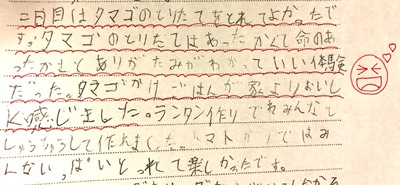 二日目はタマゴのとりたてをとれてよかったで
す。タマゴのとりたてはあったかくて命のあ
ったかさとありがたみがわかっていい体験
だった。タマゴかけごはんが家よりおいし
く感じました。ランタン作り でれみんなと
しゅうちゅうして作れました。トマトがりではみ
んないっぱいとって楽しかったです。